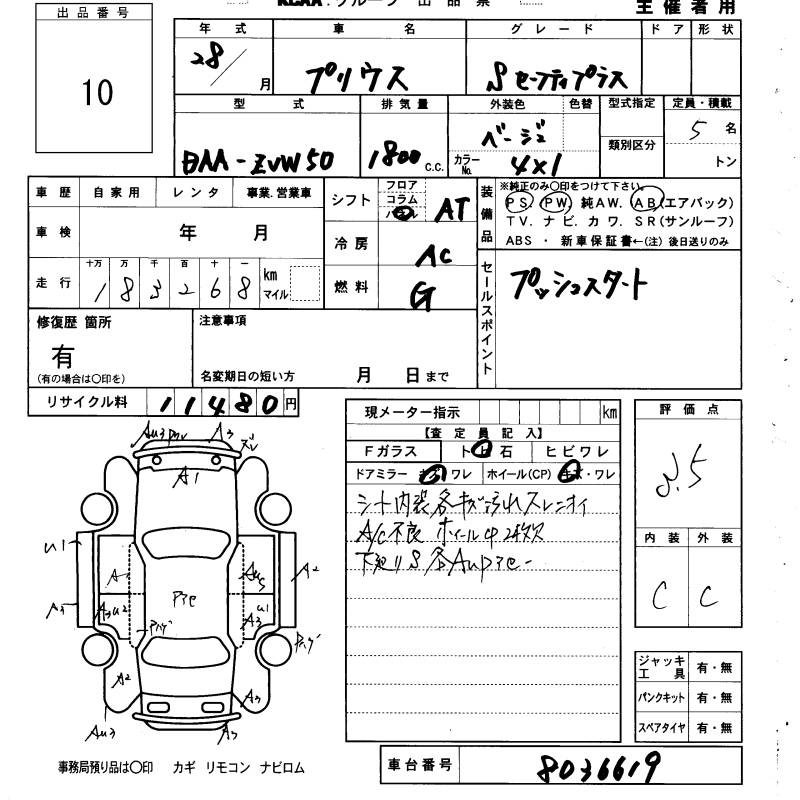 KCAA.グループ 出品票
主催者用
出品番号
10
年式 車名 グレード ドア 形状
28/ 月 プリウス Sセーフティプラス
型式 排気量 外装色 色替 型式指定 定員・積載
DAA-ZVW50 1800 c.c. ベージュ 類別区分 5 名
カラーNo. 4X1 トン
車歴 自家用 レンタ 事業.営業車
シフト フロア コラム パネル AT
装備品 ※純正のみ〇印をつけて下さい。
PS PW 純AW. AB(エアバック)
TV. ナビ. カワ. SR(サンルーフ)
ABS ・ 新車保証書←(注)後日送りのみ
車検 年 月
冷房 AC
走行 十万 万 千 百 十 一 km マイル
1 8 3 2 6 8
燃料 G
セールスポイント プッシュスタート
修復歴 箇所
有
(有の場合は〇印を)
注意事項
名変期日の短い方 月 日まで
リサイクル料 11480円
現メーター指示 km
【査定員記入】
Fガラス トビ石 ヒビワレ
ドアミラー キズ ワレ ホイール(CP) キズ・ワレ
シート内装各キズ汚れスレニオイ
A/C不良 ホイールCP
評価点
内装 外装
C C
Au3 A3
A1
U1 A A2
A3 A3 U2 A3 U1
A2 A3
Au3 A3
ジャッキ工具 有・無
パンクキット 有・無
スペアタイヤ 有・無
事務局預り品は〇印 カギ リモコン ナビロム
車台番号 8036619